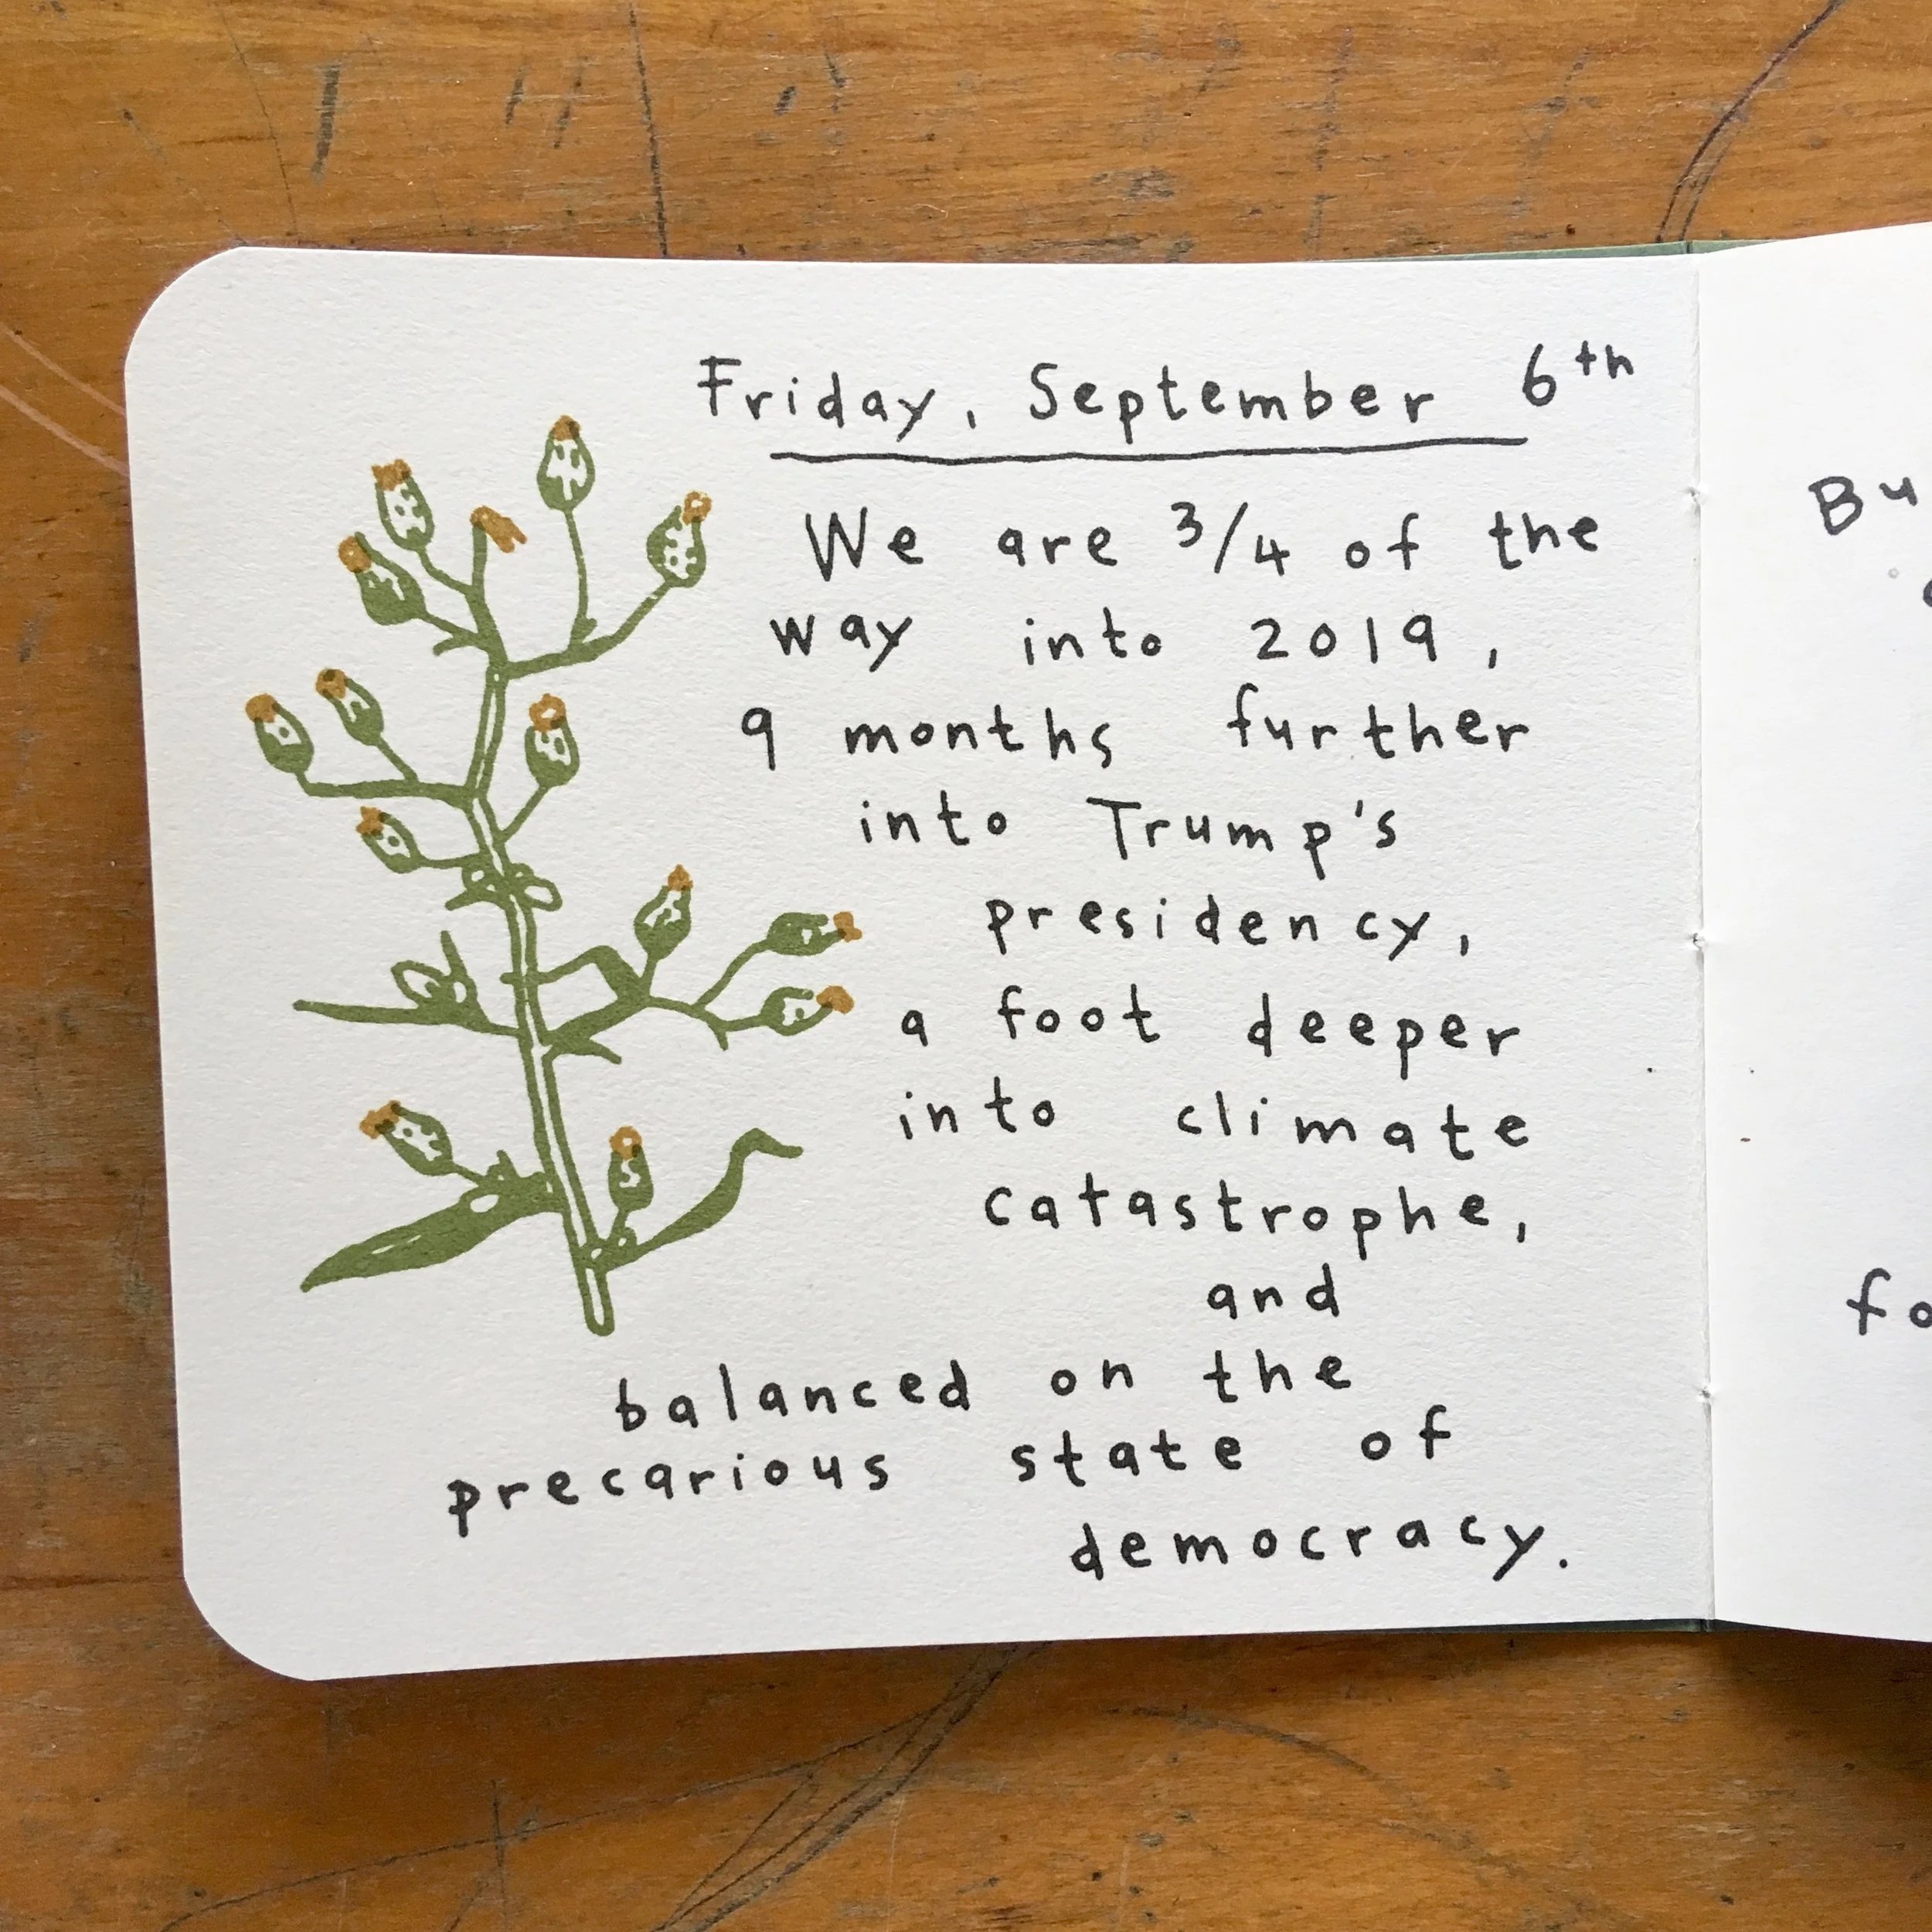 Friday, September 6th
We are 3/4 of the
way into 2019,
9 months further
into Trump's
presidency,
a foot deeper
into climate
catastrophe,
and
balanced on the
precarious state of
democracy.